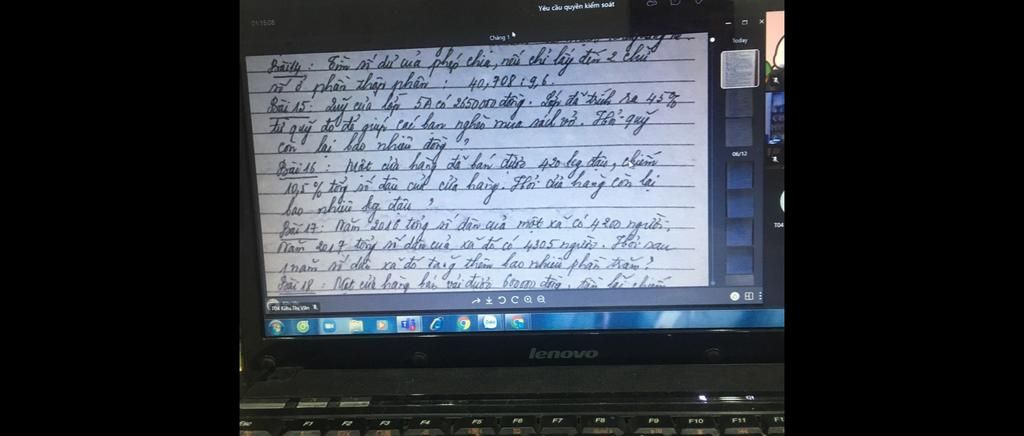 Yêu cầu quyền kiểm soát
01:15:05
Chàng 1
Today
Bài 14: Tìm số dư của phép chia, nếu chỉ lấy đến 2 chữ
số ở phần thập phân. 40,708 : 9,6.
Bài 15: Quỹ của lớp 5A có 2650000 đồng. Lớp đã trích ra 45%
từ quỹ đó để giúp các bạn nghèo mua sách vở. Hỏi quỹ
còn lại bao nhiêu đồng?
Bài 16: Một cửa hàng đã bán được 420 kg đậu, chiếm
10,5% tổng số đậu của cửa hàng. Hỏi cửa hàng còn lại
bao nhiêu kg đậu?
06/12
Bài 17: Năm 2016 tổng số dân của một xã có 4200 người.
Năm 2017 tổng số dân của xã đó có 4305 người. Hỏi sau
1 năm số dân xã đó tăng thêm bao nhiêu phần trăm?
Bài 18: Một cửa hàng bán vải được 600000 đồng, tiền lãi chiếm
T04
T04 Kiều Thị Vân
lenovo
Esc F1 F2 F3 F4 F5 F6 F7 F8 F9 F10 F11